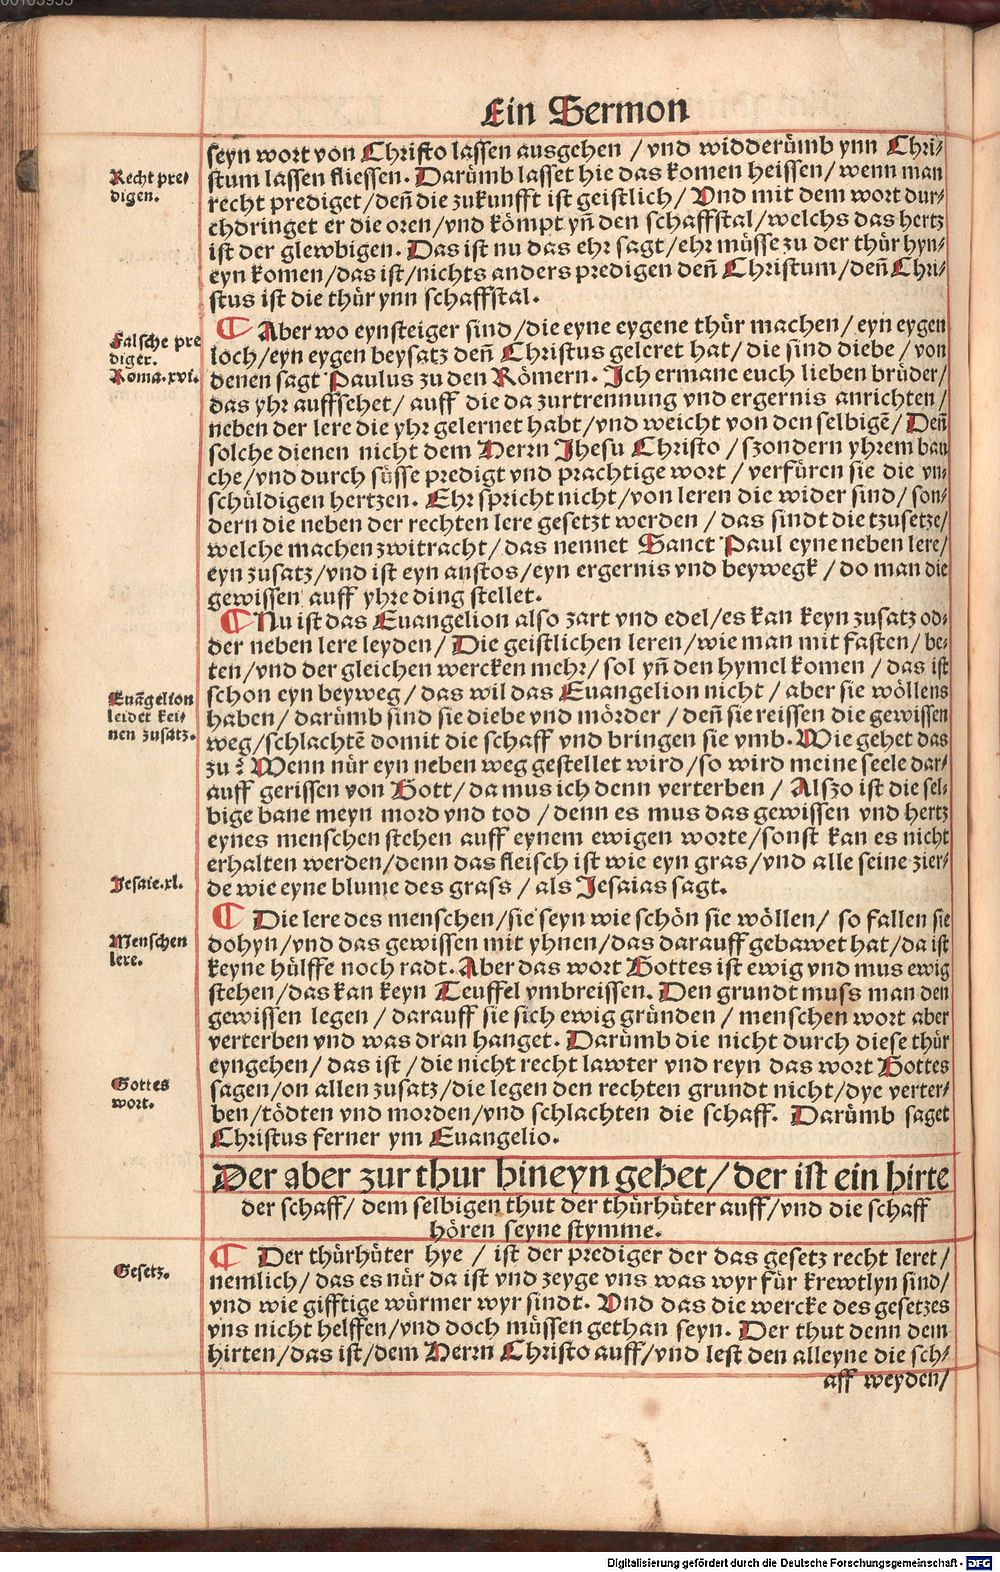 Ein Sermon
seyn wort von Christo lassen ausgehen / vnd widderůmb ynn Chri⸗
stum lassen fliessen. Darůmb lasset hie das komen heissen / wenn man
recht prediget / deñ die zukunfft ist geistlich / Vnd mit dem wort dur⸗
chdringet er die oren / vnd kõmpt yñ den schaffstal / welchs das hertz
ist der glewbigen. Das ist nu das ehr sagt / ehr můsse zu der thůr hyn⸗
eyn komen / das ist / nichts anders predigen deñ Christum / deñ Chri⸗
stus ist die thůr ynn schaffstal.
Recht pre⸗
digen.
¶ Aber wo eynsteiger sind / die eyne eygene thůr machen / eyn eygen
loch / eyn eygen beysatz deñ Christus geleret hat / die sind diebe / von
denen sagt Paulus zu den Rõmern. Ich ermane euch lieben brůder /
das yhr auffsehet / auff die da zurtrennung vnd ergernis anrichten /
neben der lere die yhr gelernet habt / vnd weicht von den selbigẽ / Deñ
solche dienen nicht dem Herrn Jhesu Christo / szondern yhrem bau
che / vnd durch sůsse predigt vnd prachtige wort / verfůren sie die vn⸗
schůldigen hertzen. Ehr spricht nicht / von leren die wider sind / son⸗
dern die neben der rechten lere gesetzt werden / das sindt die tzusetze /
welche machen zwitracht / das nennet Sanct Paul eyne neben lere /
eyn zusatz / vnd ist eyn anstos / eyn ergernis vnd beywegk / do man die
gewissen auff yhre ding stellet.
Falsche pre
diger.
Roma.xvi.
¶ Nu ist das Euangelion also zart vnd edel / es kan keyn zusatz od⸗
der neben lere leyden / Die geistlichen leren / wie man mit fasten / be⸗
ten / vnd der gleichen wercken mehr / sol yñ den hymel komen / das ist
schon eyn beyweg / das wil das Euangelion nicht / aber sie wõllens
haben / darůmb sind sie diebe vnd mõrder / deñ sie reissen die gewissen
weg / schlachtẽ domit die schaff vnd bringen sie vmb. Wie gehet das
zu? Wenn nůr eyn neben weg gestellet wird / so wird meine seele dar⸗
auff gerissen von Gott / da mus ich denn verterben / Alszo ist die sel⸗
bige bane meyn mord vnd tod / denn es mus das gewissen vnd hertz
eynes menschen stehen auff eynem ewigen worte / sonst kan es nicht
erhalten werden / denn das fleisch ist wie eyn gras / vnd alle seine zier⸗
de wie eyne blume des grass / als Jesaias sagt.
Euãgelion
leidet kei⸗
nen zusatz.
Jesaie.xl.
¶ Die lere des menschen / sie seyn wie schõn sie wõllen / so fallen sie
dohyn / vnd das gewissen mit yhnen / das darauff gebawet hat / da ist
keyne hůlffe noch radt. Aber das wort Gottes ist ewig vnd mus ewig
stehen / das kan keyn Teuffel vmbreissen. Den grundt muss man den
gewissen legen / darauff sie sich ewig grůnden / menschen wort aber
verterben vnd was dran hanget. Darůmb die nicht durch diese thůr
eyngehen / das ist / die nicht recht lawter vnd reyn das wort Gottes
sagen / on allen zusatz / die legen den rechten grundt nicht / dye verter⸗
ben / tõdten vnd morden / vnd schlachten die schaff. Darůmb saget
Christus ferner ym Euangelio.
Menschen
lere.
Gottes
wort.
Der aber zur thur hineyn gehet / der ist ein hirte
der schaff / dem selbigen thut der thůrhůter auff / vnd die schaff
hõren seyne stymme.
¶ Der thůrhůter hye / ist der prediger der das gesetz recht leret /
nemlich / das es nůr da ist vnd zeyge vns was wyr fůr krewtlyn sind /
vnd wie gifftige wůrmer wyr sindt. Vnd das die wercke des gesetzes
vns nicht helffen / vnd doch můssen gethan seyn. Der thut denn dem
hirten / das ist / dem Herrn Christo auff / vnd lest den alleyne die sch⸗
Gesetz.
aff weyden /
Digitalisierung gefördert durch die Deutsche Forschungsgemeinschaft - DFG